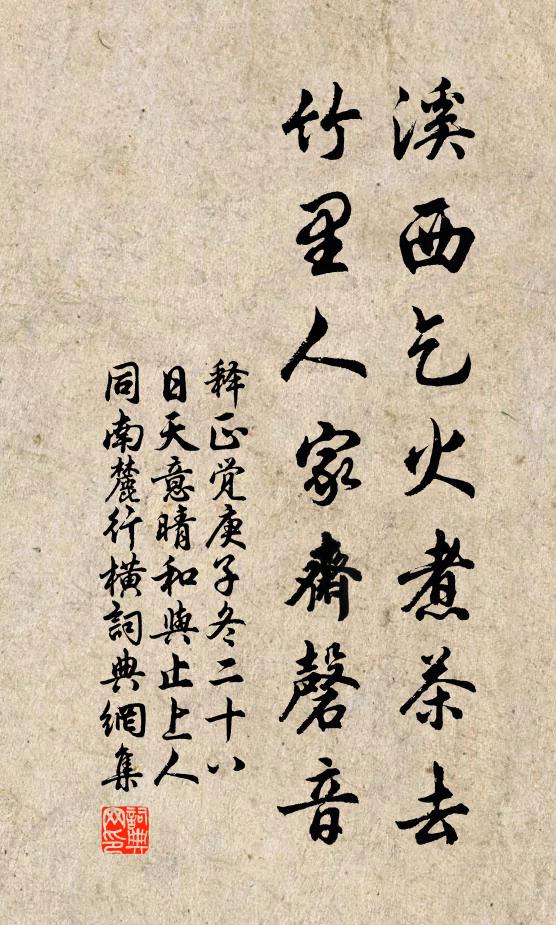 溪西乞火煮茶去
竹里人家齋磬音
释正觉庚子冬二十八
日天意晴和與止上人
同南麓行橫詞典網集
詞典网印